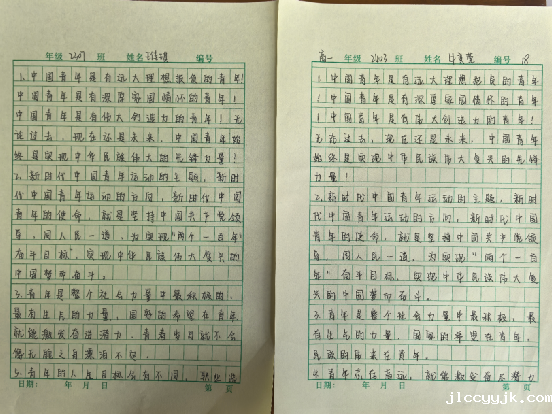 年级 2407 班 姓名 编号
1、中国青年是有远大理想抱负的青年!
中国青年是有深厚家国情怀的青年!
中国青年是有伟大创造力的青年! 无
论过去、现在还是未来,中国青年始
终是实现中华民族伟大的先锋力量!
2、新时代中国青年运动的主题,新时
代中国青年运动的方向,新时代中国
青年的使命,就是坚持中国共产党领
导,同人民一道,为实现"两个一百年"
奋斗目标、实现中华民族伟大复兴的
中国梦而奋斗。
3、青年是整个社会力量中最积极的、
最有生气的力量,国家的希望在青年,
日期: 年 月 日 第 页
年级 班 姓名 编号
1、中国青年是有远大理想抱负的青年
!中国青年是有深厚家国情怀的青年
!中国青年是有伟大创造力的青年!
无论过去,现在还是未来,中国青年
始终是实现中华民族伟大复兴的先锋
力量!
2、新时代中国青年运动的主题,新时
代中国青年运动的方向,新时代中国
青年的使命,就是坚持中国共产党领
导,同人民一道,为实现"两个一百
年"奋斗目标,实现中华民族伟大复
兴的中国梦而奋斗。
3、青年是整个社会力量中最积极,最
有生气的力量,国家的希望在青年,
民族的未来在青年。
日期: 年 月 日 第 页
jlccyyjk.com